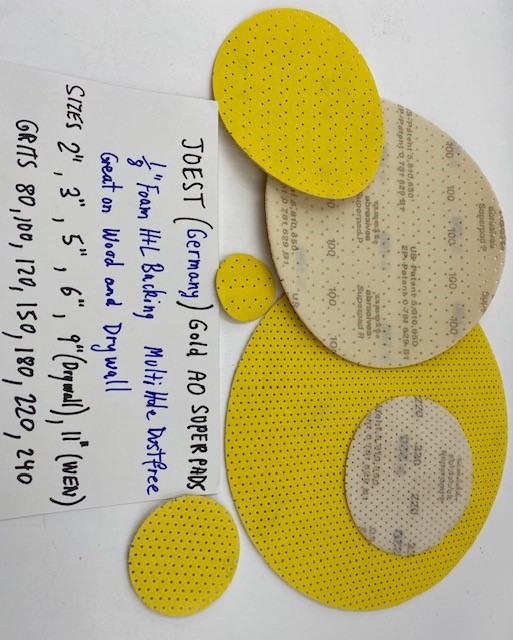 JOEST (Germany) Gold AO SUPERPADS
1/8" Foam H+L Backing Multi Hole Dustfree
Great on Wood and Drywall
SIZES 2", 3", 5", 6", 9" (Drywall), 11" (WEN)
GRITS 80, 100, 120, 150, 180, 220, 240
100
100
100
100
100
US-Patent 5,810,650
EP-Patent 0.781.629.B1
abrasives
Superpad P
220